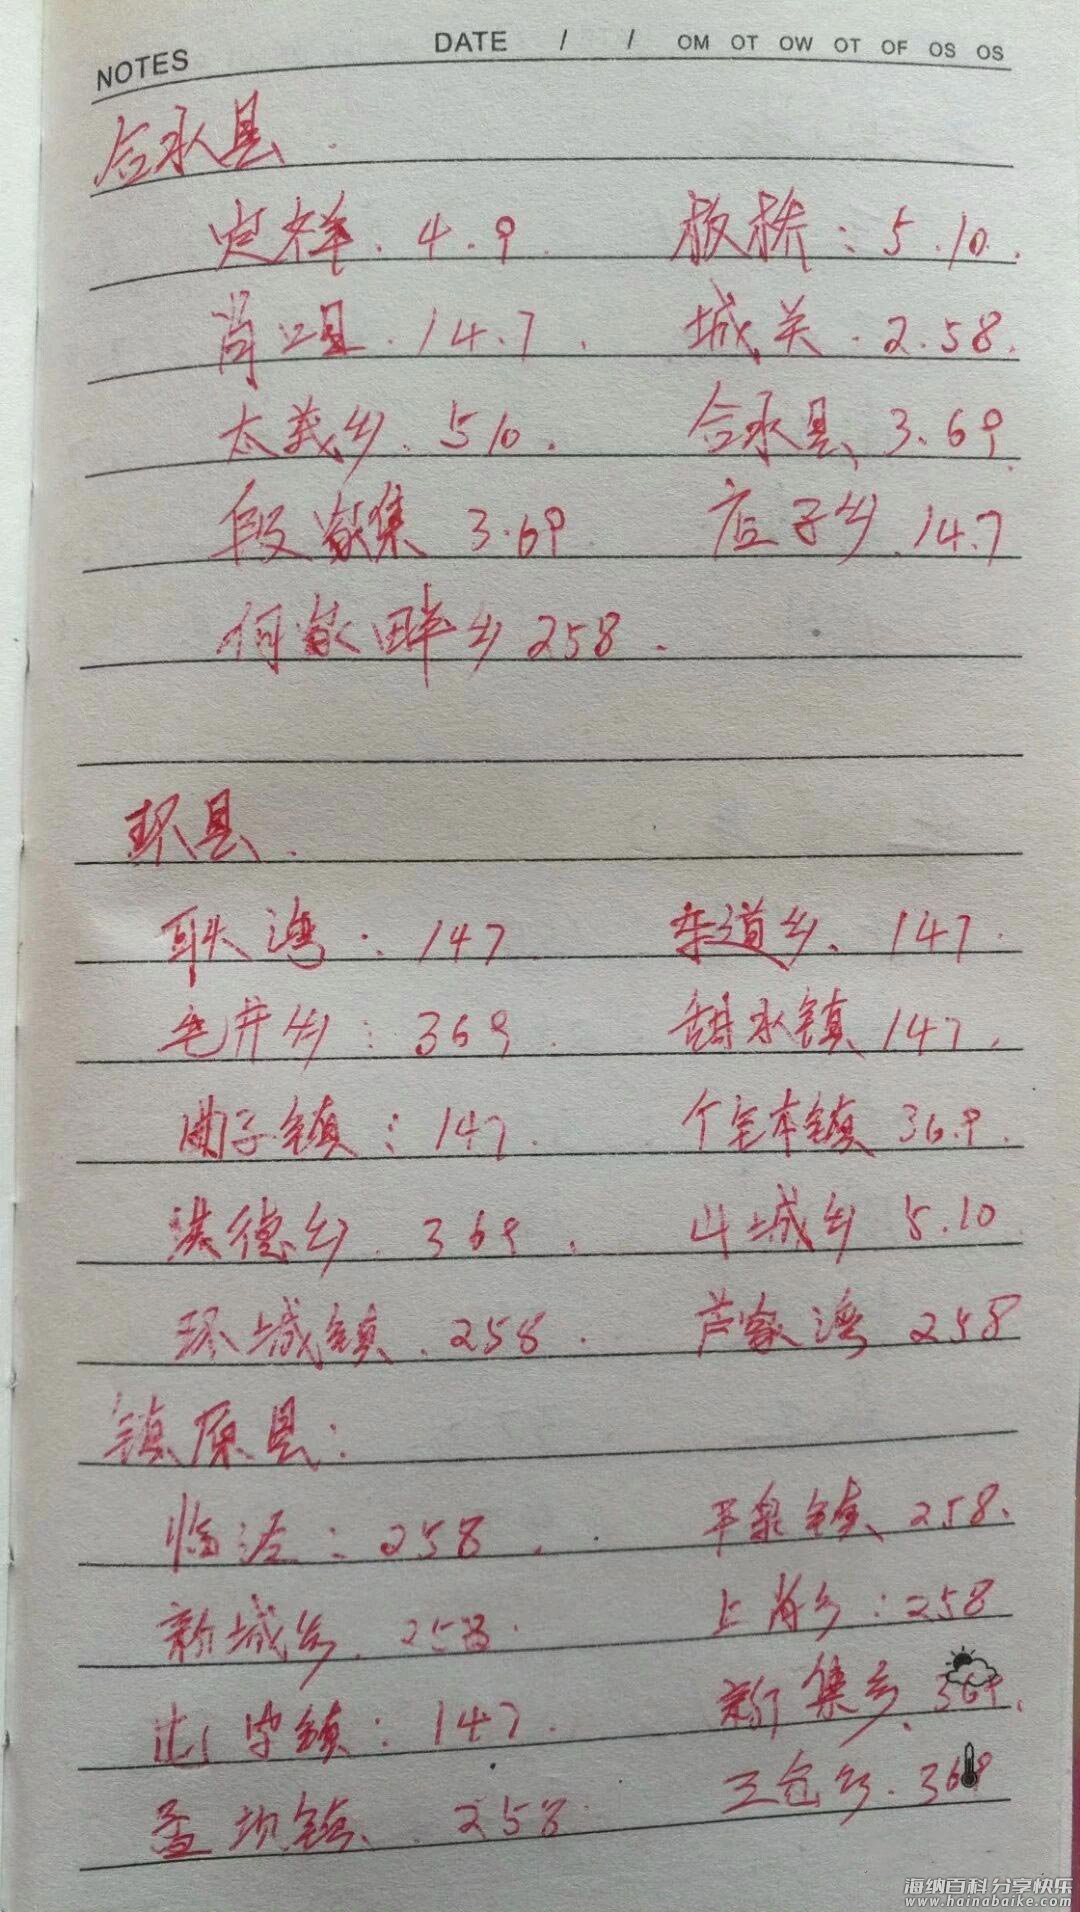 NOTES DATE / / OM OT OW OT OF OS OS
合水县.
定祥. 4.9. 板桥: 5.10.
肖咀. 14.7. 城关. 2.58.
太莪乡. 510. 合水县、3.69.
段家集 3.69. 店子乡.14.7
何家畔乡 258.
环县.
耿湾: 147 车道乡、147.
毛井乡: 369. 甜水镇 147.
曲子镇: 147. 本镇 369.
洪德乡. 369. 山城乡 5.10
环城镇. 258. 芦家湾 258
镇原县:
临泾: 258. 平泉镇、258.
新城乡. 258. 上肖乡: 258
屯字镇: 147. 新集乡、369.
孟坝镇、. 258. 三岔乡. 369
海纳百科 分享快乐
www.hainabaike.com